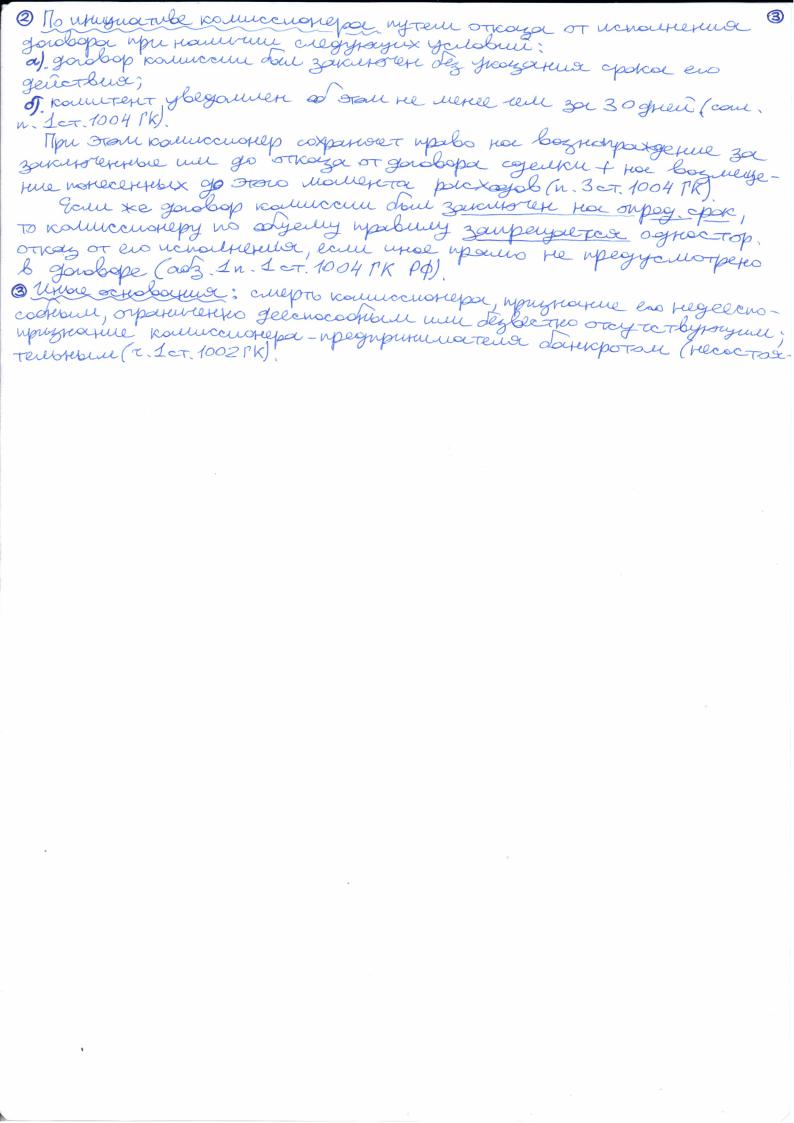 ② По инициативе комиссионера путем отказа от исполнения ③
договора при наличии следующих условий:
а). договор комиссии был заключен без указания срока его
действия;
б). комитент уведомлен об этом не менее чем за 30 дней (
п. 1 ст. 1004 ГК).
При этом комиссионер сохраняет право на вознаграждение за
заключенные им до отказа от договора сделки + на возмеще-
ние понесенных до этого момента расходов (п. 3 ст. 1004 ГК).
Если же договор комиссии был заключен на опред. срок,
то комиссионеру по общему правилу запрещается одностор.
отказ от его исполнения, если иное прямо не предусмотрено
в договоре (абз. 1 п. 1 ст. 1004 ГК РФ).
③ Иные основания: смерть комиссионера, признание его недееспо-
собным, ограниченно дееспособным или безвестно отсутствующим;
признание комиссионера-предпринимателя банкротом (несостоя-
тельным (ч. 1 ст. 1002 ГК).